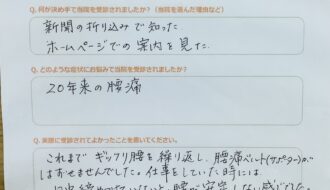 Q. 何が決め手で当院を受診されましたか?(当院を選んだ理由など)
新聞の折り込みで知った
ホームページでの案内を見た.
Q. どのような症状にお悩みで当院を受診されましたか?
20年来の腰痛
Q. 実際に受診されてよかったことを書いてください。
これまで ギックリ腰を繰り返し、腰痛ベルト(サポーター)が
はずせませんでした。仕事をしていた時には、